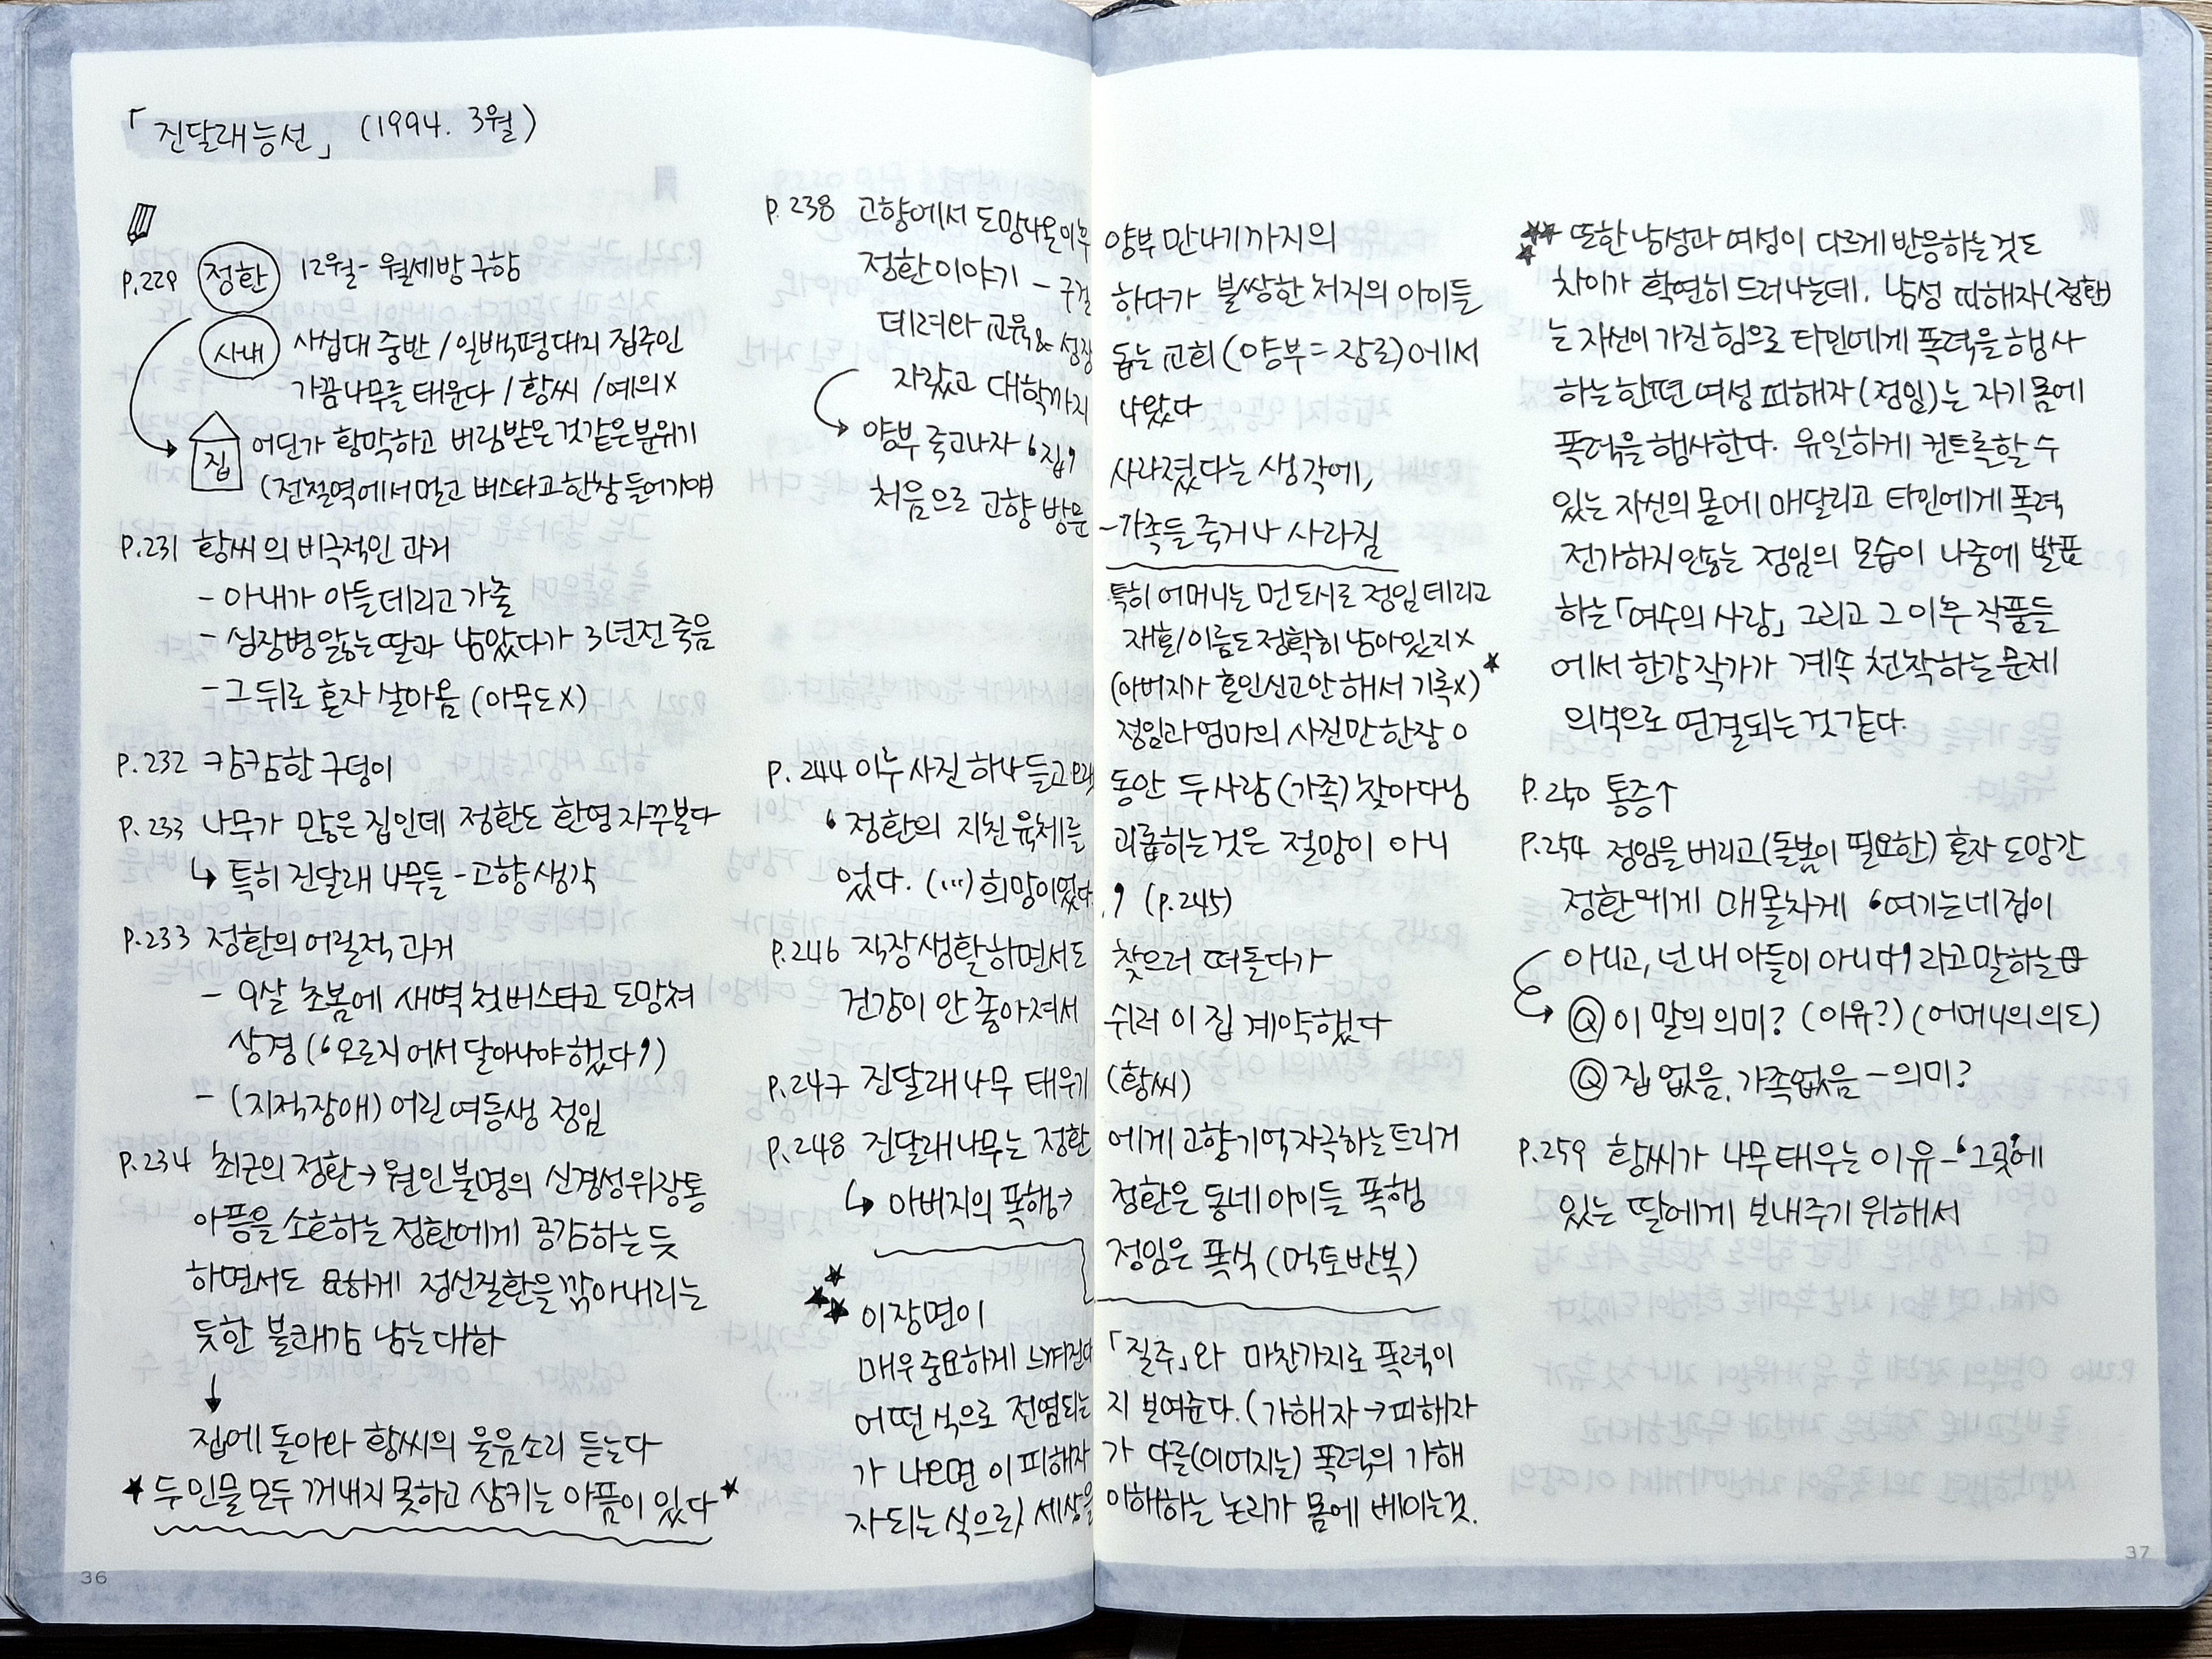 「진달래능선」 (1994. 3월)
P.229 정환 12월- 월세방 구함
사내 사십대 중반 / 일백평대지 집주인
가끔나무를 태운다 / 황씨 / 예의x
집 어딘가 황막하고 버림받은것같은분위기
(전철역에서멀고 버스타고한참들어가야)
P.231 황씨의 비극적인 과거
- 아내가 아들데리고 가출
- 심장병앓는딸과 남았다가 3년전죽음
- 그뒤로 혼자 살아옴 (아무도X)
P.232 캄캄한 구덩이
P.233 나무가 많은 집인데 정환도 한영자꾸본다
↳ 특히 진달래 나무들-고향생각
P.233 정환의 어릴적 과거
- 9살 초봄에 새벽 첫버스타고 도망쳐
상경 ('오로지어서달아나야했다')
- (지적장애) 어린여동생 정임
P.234 최근의 정환→ 원인불명의 신경성위장통
아픔을 소호하는 정환에게 공감하는 듯
하면서도 묘하게 정신질환을 깎아내리는
듯한 불쾌감 남는대화
↓
집에 돌아와 황씨의 울음소리 듣는다
★ 두인물모두 꺼내지못하고 삼키는 아픔이 있다 ★
P.238 고향에서 도망나온이후 양부만나기까지의
정환이야기 - 구걸하다가 불쌍한 처지의 아이들
데려와 교육& 성장 돕는 교회 (양부=장로)에서
자랐고 대학까지 나왔다
→ 양부 죽고나자 '집' 사라졌다는 생각에,
처음으로 고향 방문 -가족들 죽거나 사라짐
특히 어머니는 먼 도시로 정임데리고
재혼/이름도정확히 남아있지x
(아버지가 혼인신고안해서 기록x)★
정임과엄마의 사진만한장 o
P.244 이누 사진 하나 들고오래동안 두사람(가족) 찾아다님
'정환의 지친 육체를 괴롭히는것은 절망이 아니
었다. (…) 희망이었다.' (p.245)
P.246 직장생활하면서도 찾으러 떠돌다가
건강이 안 좋아져서 쉬러 이 집 계약했다
P.247 진달래나무 태우기 (황씨)
P.248 진달래나무는 정환에게고향기억자극하는트리거
↳ 아버지의 폭행→ 정환은 동네아이들 폭행
정임은 폭식 (먹토반복)
★★★ 이장면이
매우중요하게 느껴진다 「질주」와 마찬가지로 폭력이
어떤식으로 전염되는지 보여준다.(가해자→피해자
가 나오면 이피해자가 다른(이어지는) 폭력의 가해
자되는식으로) 세상을이해하는 논리가 몸에 베이는것.
★★★ 또한남성과 여성이 다르게 반응하는것도
차이가 확연히드러나는데. 남성 피해자(정환)
는 자신이가진힘으로 타인에게 폭력을 행사
하는한편 여성피해자(정임)는 자기몸에
폭력을행사한다. 유일하게 컨트롤할수
있는 자신의 몸에 매달리고 타인에게 폭력
전가하지않는 정임의 모습이 나중에 발표
하는「여수의 사랑」 그리고 그 이후 작품들
에서 한강작가가 계속 천착하는문제
의식으로 연결되는것 같다.
P.250 통증↑
P.254 정임을버리고(돌봄이 필요한) 혼자 도망간
정환에게 매몰차게 '여기는네집이
아니고, 넌내 아들이아니다'라고말하는母
Q 이 말의의미? (이유?) (어머니의의도)
Q 집없음, 가족없음 -의미?
P.259 황씨가 나무태우는이유-'그곳'에
있는 딸에게 보내주기위해서
36
37